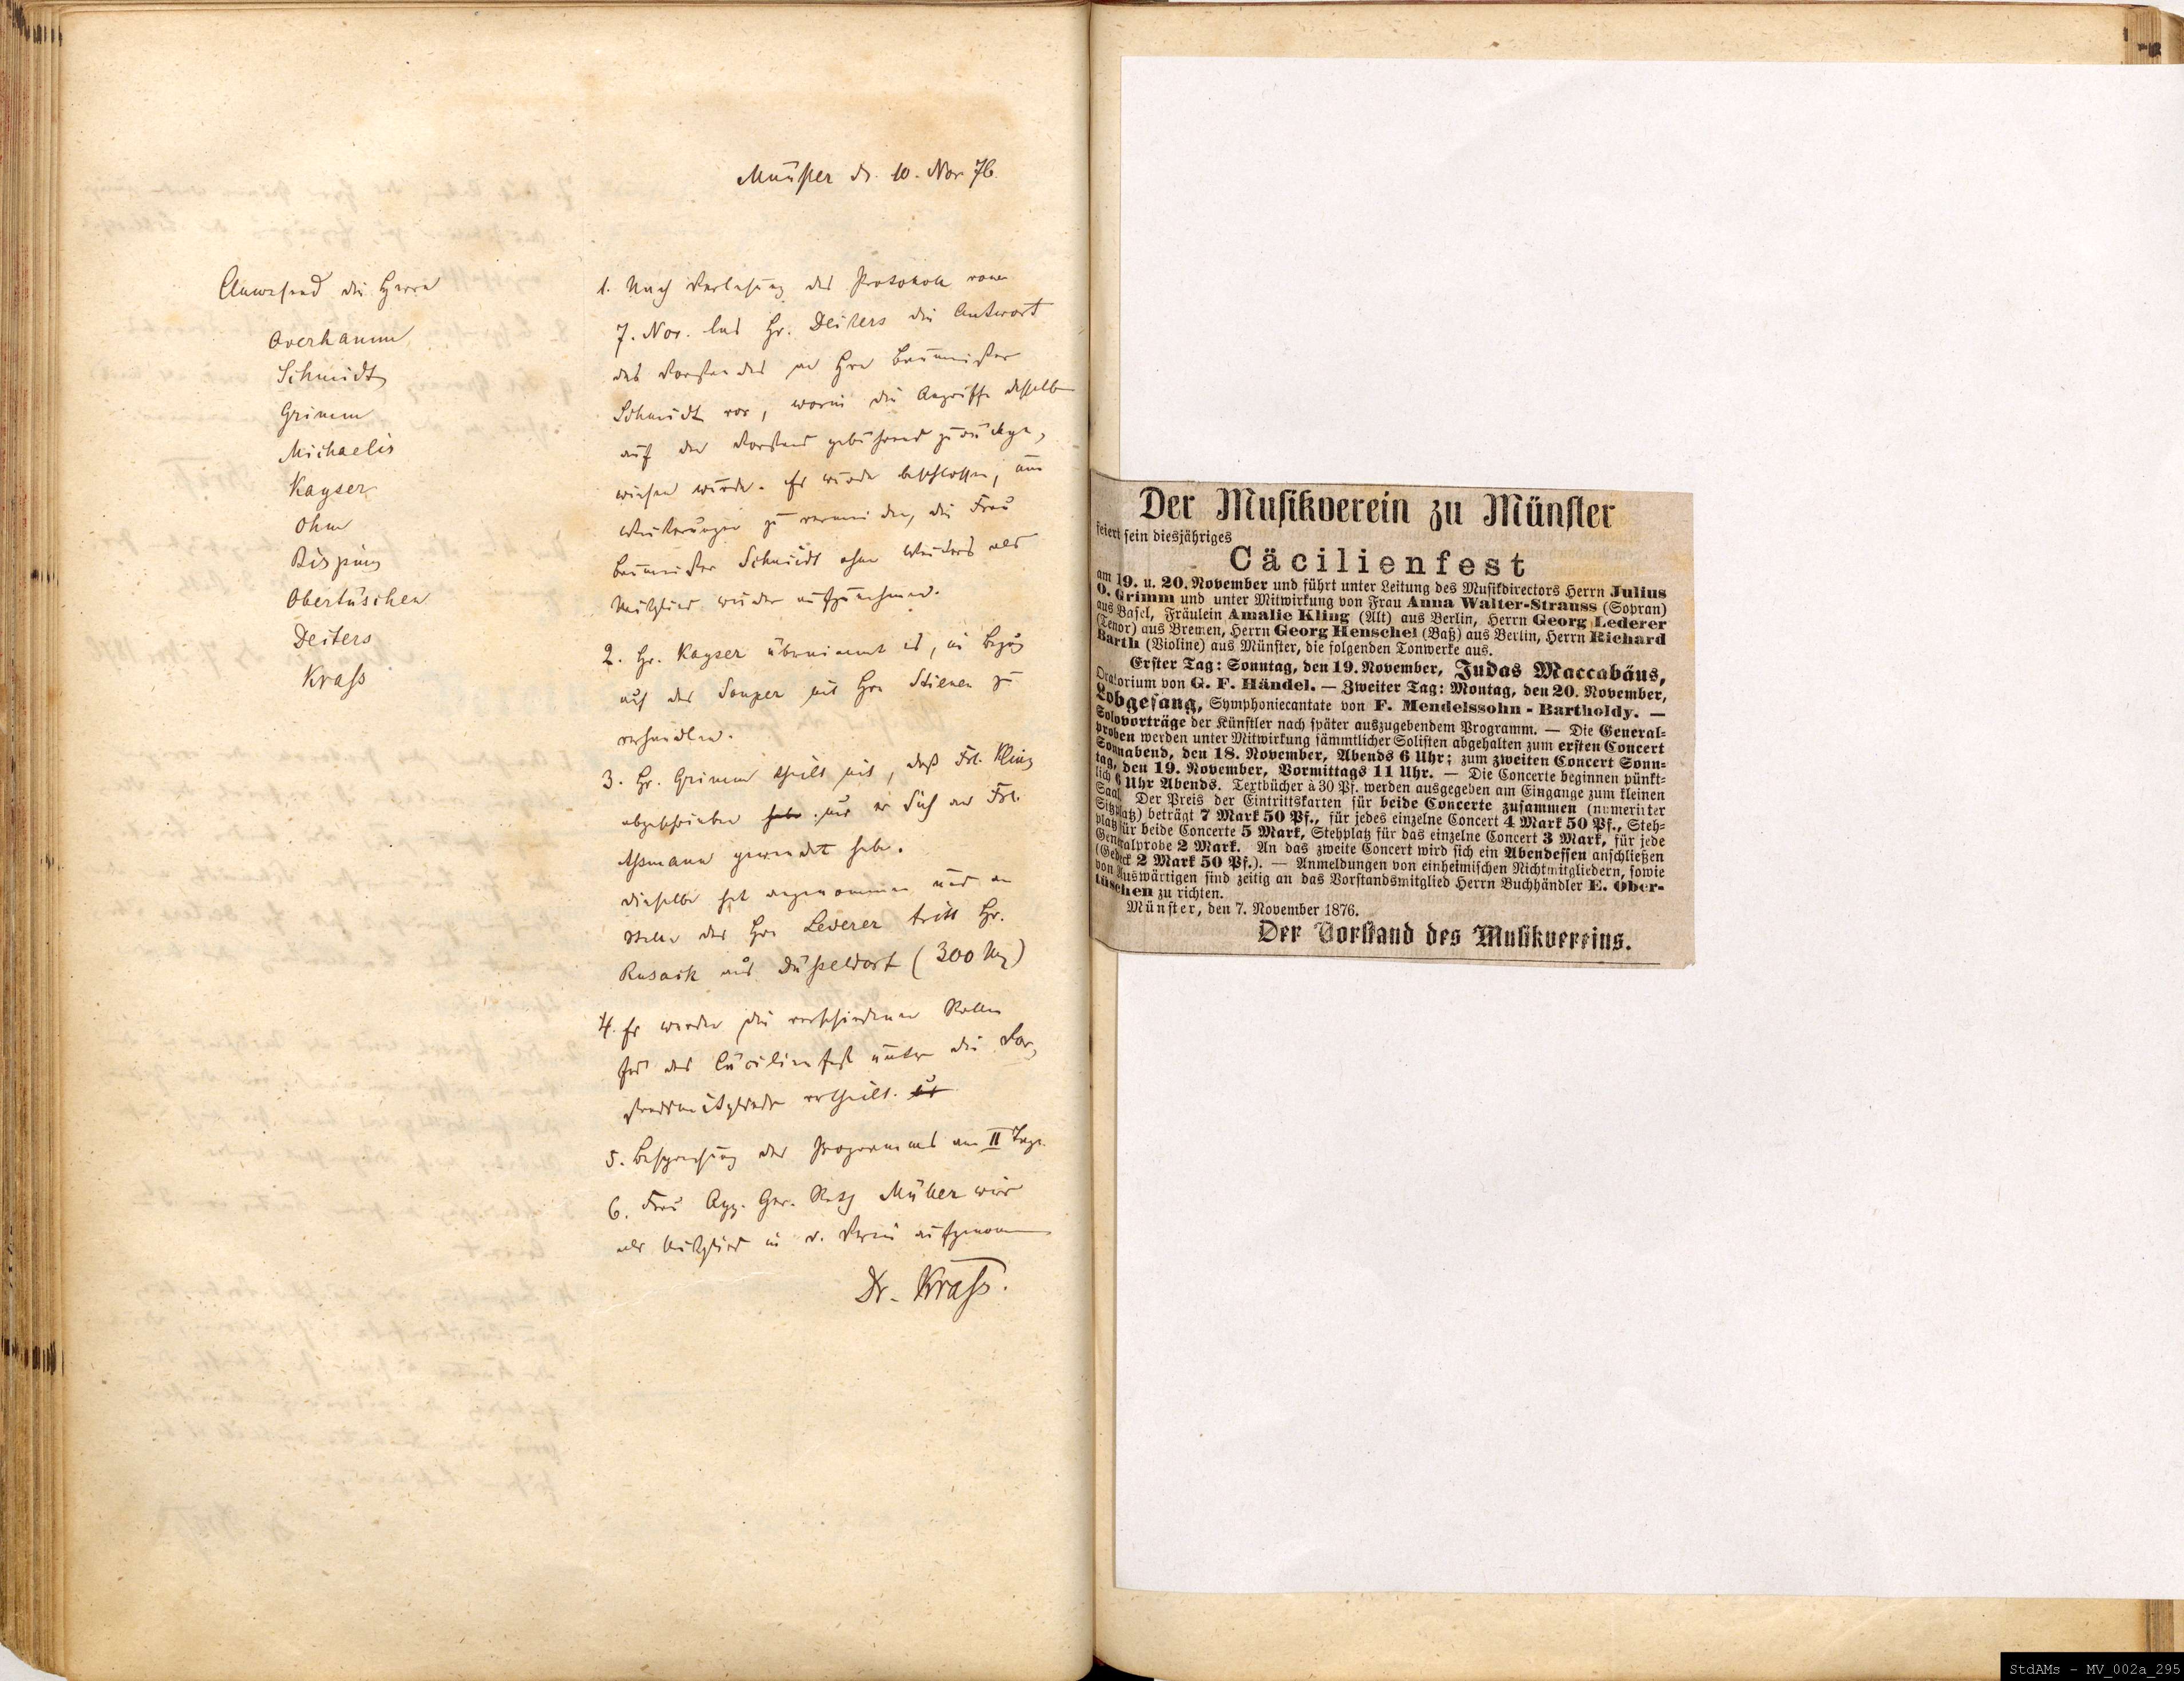 Münster d. 10. Nov 76.
Anwesend die Herrn
Overhamm
Schmidt
Grimm
Michaelis
Kayser
Ohm
Bisping
Obertüschen
Deiters
Krass
1. Nach Verlesung des Protokolls vom
7. Nov. las Hr. Deiters die Antwort
des Vorstandes an Hrn Baumeister
Schmidt vor, worin die Angriffe desselben
auf den Vorstand gebührend zurückge-
wiesen wurde. Es wurde beschlossen, um
Weiterungen zu vermeiden, die Frau
Baumeister Schmidt ohne Weiteres als
Mitglied wieder aufzunehmen.
2. Hr. Kayser übernimmt es, in Bezug
auf das Souper mit Hrn Stienen zu
verhandeln.
3. Hr. Grimm theilt mit, daß Frl. Kling
abgeschrieben habe und er sich an Frl.
Assmann gewendet habe.
dieselbe hat angenommen und an
Stelle des Hrn Lederer tritt Hr.
Rusack aus Düsseldorf (300 M)
4. Es werden die verschiedenen Rollen
für das Cäcilienfest unter die Vor-
standsmitglieder vertheilt.
5. Besprechung des Programms am II Tage.
6. Frau App. Ger. Rath Müller wird
als Mitglied in d. Verein aufgenommen
Dr. Krass.
Der Musikverein zu Münster
feiert sein diesjähriges
Cäcilienfest
am 19. u. 20. November und führt unter Leitung des Musikdirectors Herrn Julius
O. Grimm und unter Mitwirkung von Frau Anna Walter-Strauss (Sopran)
aus Basel, Fräulein Amalie Kling (Alt) aus Berlin, Herrn Georg Lederer
(Tenor) aus Bremen, Herrn Georg Henschel (Baß) aus Berlin, Herrn Richard
Barth (Violine) aus Münster, die folgenden Tonwerke aus.
Erster Tag: Sonntag, den 19. November, Judas Maccabäus,
Oratorium von G. F. Händel. — Zweiter Tag: Montag, den 20. November,
Lobgesang, Symphoniecantate von F. Mendelssohn-Bartholdy. —
Solovorträge der Künstler nach später auszugebendem Programm. — Die General-
proben werden unter Mitwirkung sämmtlicher Solisten abgehalten zum ersten Concert
Sonnabend, den 18. November, Abends 6 Uhr; zum zweiten Concert Sonn-
tag, den 19. November, Vormittags 11 Uhr. — Die Concerte beginnen pünkt-
lich 6 Uhr Abends. Textbücher à 30 Pf. werden ausgegeben am Eingange zum kleinen
Saal. Der Preis der Eintrittskarten für beide Concerte zusammen (numerirter
Sitzplatz) beträgt 7 Mark 50 Pf., für jedes einzelne Concert 4 Mark 50 Pf., Steh-
platz für beide Concerte 5 Mark, Stehplatz für das einzelne Concert 3 Mark, für jede
Generalprobe 2 Mark. An das zweite Concert wird sich ein Abendessen anschließen
(Gedeck 2 Mark 50 Pf.). — Anmeldungen von einheimischen Nichtmitgliedern, sowie
von Auswärtigen sind zeitig an das Vorstandsmitglied Herrn Buchhändler E. Ober-
tüschen zu richten.
Münster, den 7. November 1876.
Der Vorstand des Musikvereins.
StdAMs - MV_002a_295